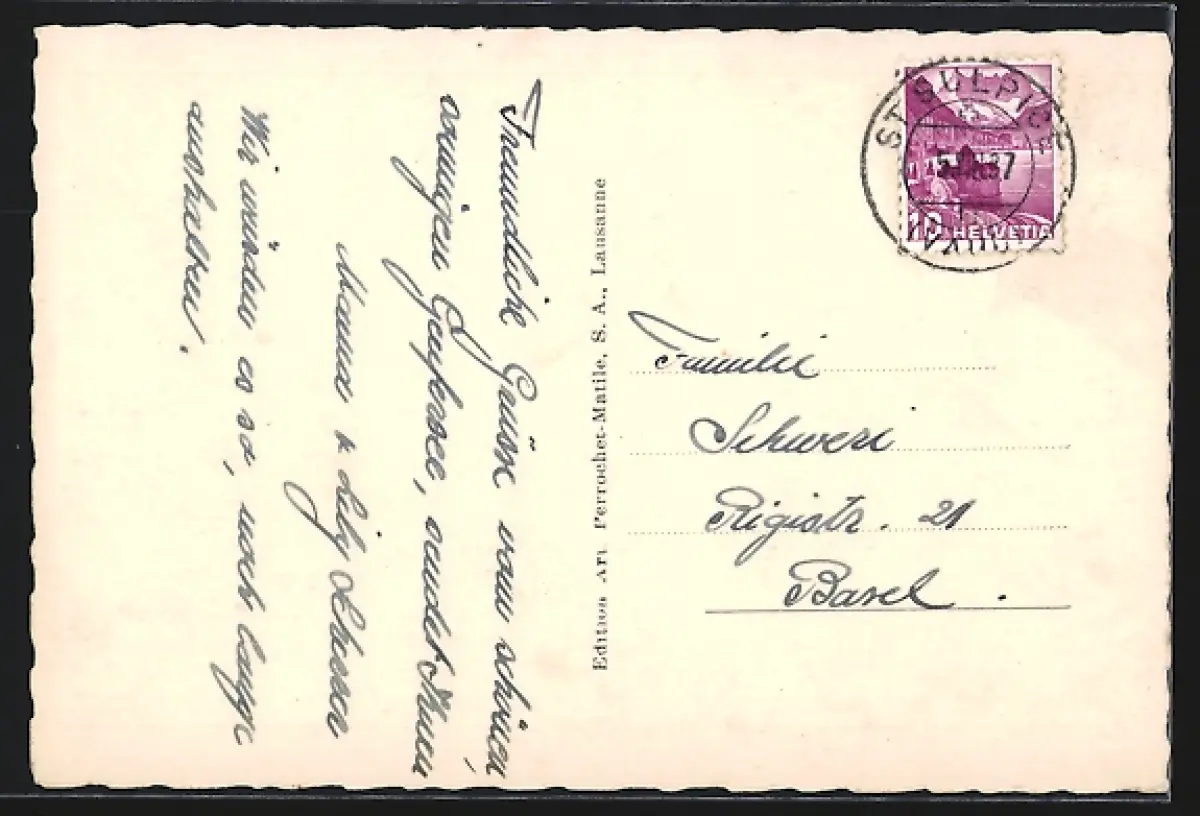 Freundliche Grüsse vom schönen,
sonnigen Genfersee, sendet Ihnen
Hanna & Lily
Wir würden es so, noch lange
aushalten.
Edition Art. Perrochet-Matile, S. A., Lausanne
ST SULPICE
VAUD
10 HELVETIA
Familie
Schweri
Rigistr. 21
Basel.